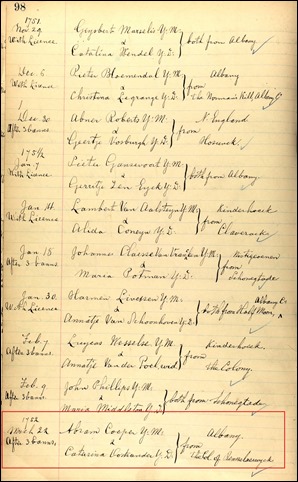 98
1751.
Nov. 29 Gysbert Marselis Y.M.
With Licence & both from Albany
Catalina Wendel Y.D.
Dec. 6 Pieter Bloemendal Y.M. Albany
With Licence & from
Christina Legrange Y.D. the Norman's Kill, Albany
Dec. 30 Abner Roberts Y.M. N. England
After 3 banns & from
Geertje Vosburgh Y.D. Hoseneck.
1751/2
Jan 7 Pieter Gansevoort Y.M.
With Licence & both from Albany
Gerritje Ten Eyck Y.D.
Jan. 14. Lambert Van Aalsteyn Y.M. Kinderhoeck
With Licence & from
Alida Coneyn Y.D. Claverack
Jan. 18 Johannes Claesse Y.M.
After 3 banns & from
Maria Potman Y.D. Schonegtade
Jan. 30. Harmen Lievesen Y.M. Albany Co.
With Licence & both from Half Moon,
Annatje Van Schoonhoven Y.D.
Feb. 7 Lucyens Wesselse Y.M. Kinderhoek
After 3 banns. & from
Annatje Vander Poel Y.D. the Colony.
Feb. 9 John Phillips Y.M.
After 3 banns & both from Schonegtady
Maria Middleton Y.D.
1752
March 22 Abram Cooper Y.M. Albany
After 3 banns. & from
Catarina Y.D. the Col. of Rensselaerwyck